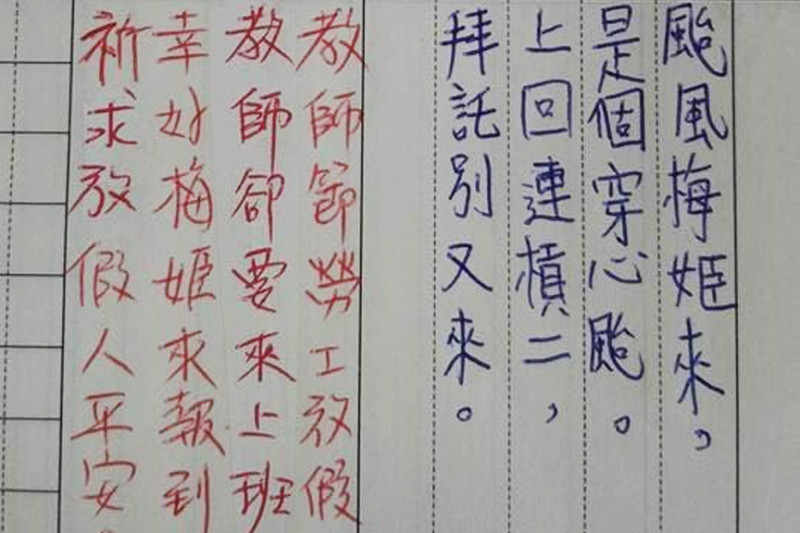 颱風梅姬來，
是個穿心颱。
上回連槓二，
拜託別又來。
教師節勞工放假
教師卻要來上班
幸好梅姬來報到
祈求放假人平安。